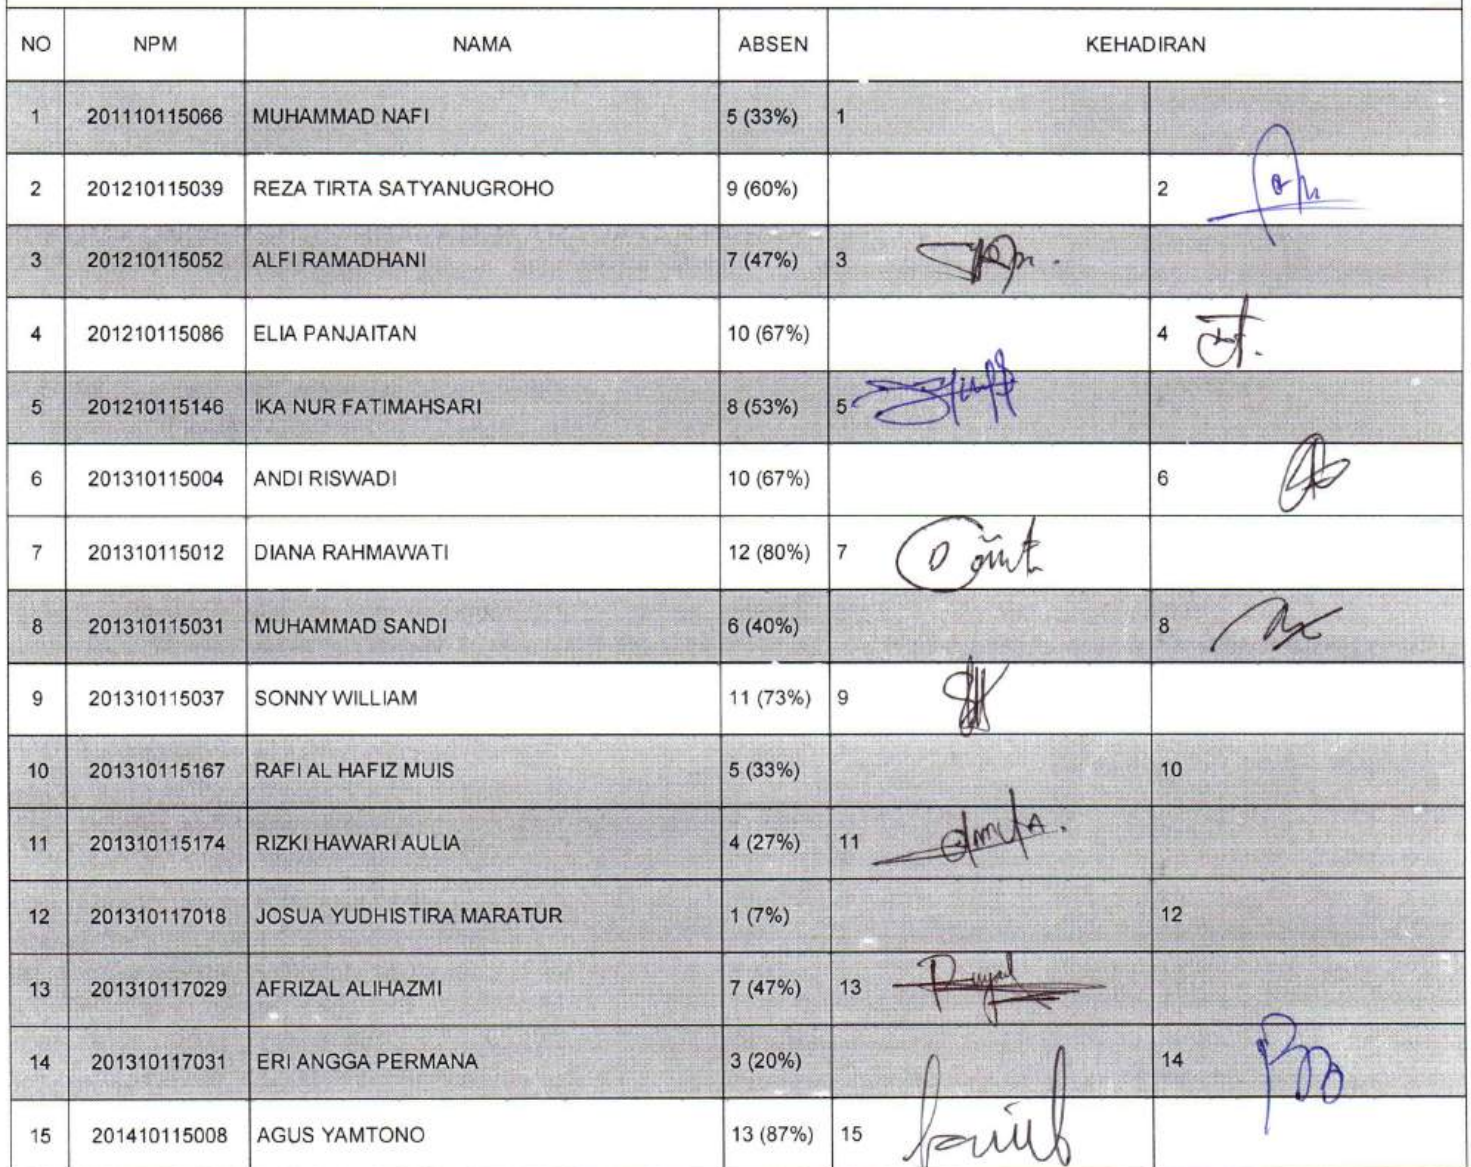 NO NPM NAMA ABSEN KEHADIRAN
1 201110115066 MUHAMMAD NAFI 5 (33%) 1
2 201210115039 REZA TIRTA SATYANUGROHO 9 (60%) 2
3 201210115052 ALFI RAMADHANI 7 (47%) 3
4 201210115086 ELIA PANJAITAN 10 (67%) 4
5 201210115146 IKA NUR FATIMAHSARI 8 (53%) 5
6 201310115004 ANDI RISWADI 10 (67%) 6
7 201310115012 DIANA RAHMAWATI 12 (80%) 7
8 201310115031 MUHAMMAD SANDI 6 (40%) 8
9 201310115037 SONNY WILLIAM 11 (73%) 9
10 201310115167 RAFI AL HAFIZ MUIS 5 (33%) 10
11 201310115174 RIZKI HAWARI AULIA 4 (27%) 11
12 201310117018 JOSUA YUDHISTIRA MARATUR 1 (7%) 12
13 201310117029 AFRIZAL ALIHAZMI 7 (47%) 13
14 201310117031 ERI ANGGA PERMANA 3 (20%) 14
15 201410115008 AGUS YAMTONO 13 (87%) 15